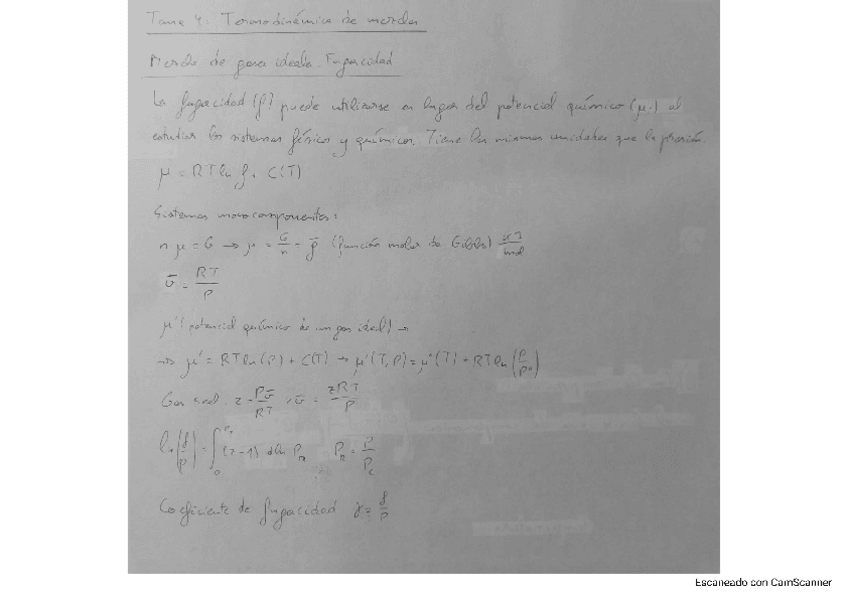 Tema 4: Termodinámica de mezclas
Mezcla de gases ideales. Fugacidad
La fugacidad (f) puede utilizarse en lugar del potencial químico (μ) al
estudiar los sistemas físicos y químicos. Tiene las mismas unidades que la presión.
μ = RT ln f + C(T)
Sistemas monocomponentes:
n μ = G → μ = G/n = ḡ (función molar de Gibbs) kJ/mol
v̄ = RT/P
μ' (potencial químico de un gas ideal) →
→ μ' = RT ln(P) + C(T) → μ'(T, P) = μ°(T) + RT ln(P/P°)
Gas real. z = Pv̄/RT, v̄ = zRT/P
ln(f/P) = ∫₀^Pᵣ (z-1) d ln P_R P_R = P/P_c
Coeficiente de fugacidad γ = f/P
Escaneado con CamScanner